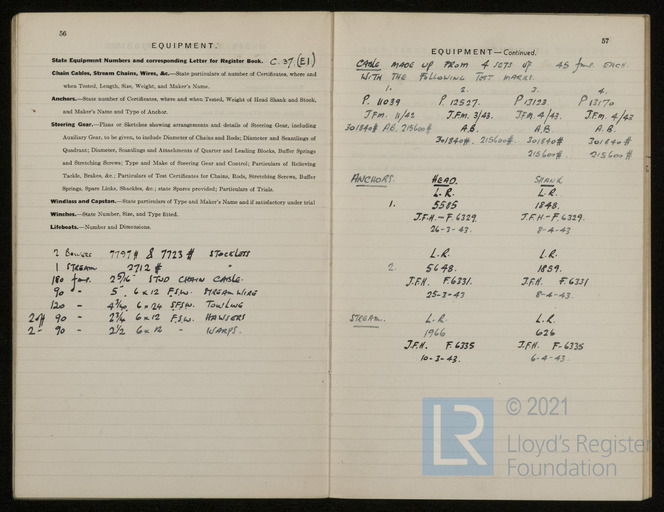 56
EQUIPMENT.
State Equipment Numbers and corresponding Letter for Register Book. C.37.(E1)
Chain Cables, Stream Chains, Wires, &c.—State particulars of number of Certificates, where and
when Tested, Length, Size, Weight, and Maker's Name.
Anchors.—State number of Certificates, where and when Tested, Weight of Head Shank and Stock,
and Maker's Name and Type of Anchor.
Steering Gear.—Plans or Sketches showing arrangements and details of Steering Gear, including
Auxiliary Gear, to be given, to include Diameter of Chains and Rods; Diameter and Scantlings of
Quadrant; Diameter, Scantlings and Attachments of Quarter and Leading Blocks, Buffer Springs
and Stretching Screws; Type and Make of Steering Gear and Control; Particulars of Relieving
Tackle, Brakes, &c.; Particulars of Test Certificates for Chains, Rods, Stretching Screws, Buffer
Springs, Spare Links, Shackles, &c.; state Spares provided; Particulars of Trials.
Windlass and Capstan.—State particulars of Type and Maker's Name and if satisfactory under trial
Winches.—State Number, Size, and Type fitted.
Lifeboats.—Number and Dimensions.
2 Bowers 7797# & 7723# STOCKLESS
1 STREAM 2712# "
180 fms. 2 5/16 STUD CHAIN CABLE.
90 - 5" 6 x 12 F.S.W. STREAM WIRE
120 - 6 x 24 S.F.S.W. TOWLINE
2 off 90 - 2 3/4 6 x 12 F.S.W. HAWSERS
2 - 90 - 2 1/2 6 x 12 " WARPS.
57
EQUIPMENT—Continued.
CABLE MADE UP FROM 4 SETS OF 45 fms. EACH.
WITH THE FOLLOWING TEST MARKS.
1. 2. 3. 4.
P. 11039 P. 12527. P 13123. P 13170
J.F.M. 11/42 J.F.M. 3/43. J.F.M. 4/43. J.F.M. 4/43
301840# A.B. 215600# A.B. A.B. A.B.
301840#. 215600#. 301840# 301840#
215600# 215600#
ANCHORS. HEAD. SHANK
L.R. L.R.
1. 5585 1848.
J.F.H.-F.6329. J.F.H.-F.6329.
26-3-43. 8-4-43.
L.R. L.R.
2. 5648. 1859.
J.F.H. F.6331. J.F.H. F.6331
25-3-43 8-4-43.
STREAM. L.R. L.R.
1966 626
J.F.H. F.6335 J.F.H. F-6335
10-3-43. 6-4-43.
LR © 2021
Lloyd's Register
Foundation